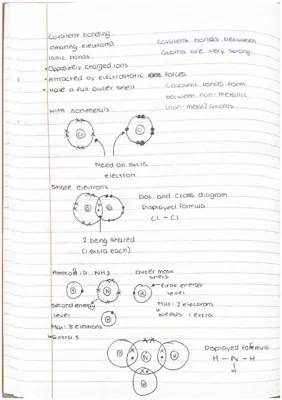 Covalent bonding:
(sharing electrons)
Ionic bonds
• Oppositely charged ions
• Attracted by electrostatic forces
• Have a full outer shell
Covalent bonds between
atoms are very strong
Covalent bonds form
between non-metallic
(non-metal) atoms
With nonmetals
Cl
Cl
Need an extra
electron
Share electrons
Cl
Cl
Dot and Cross diagram
Displayed formula:
Cl - Cl
2 being shared
(1 extra each)
NH3
Outer most
shell
H
N
H
H
First energy
level
Max: 2 electrons
Needs 1 extra
Second energy
level
Max: 8 electrons
H
N
H
H
Displayed formula
H - N - H
|
H